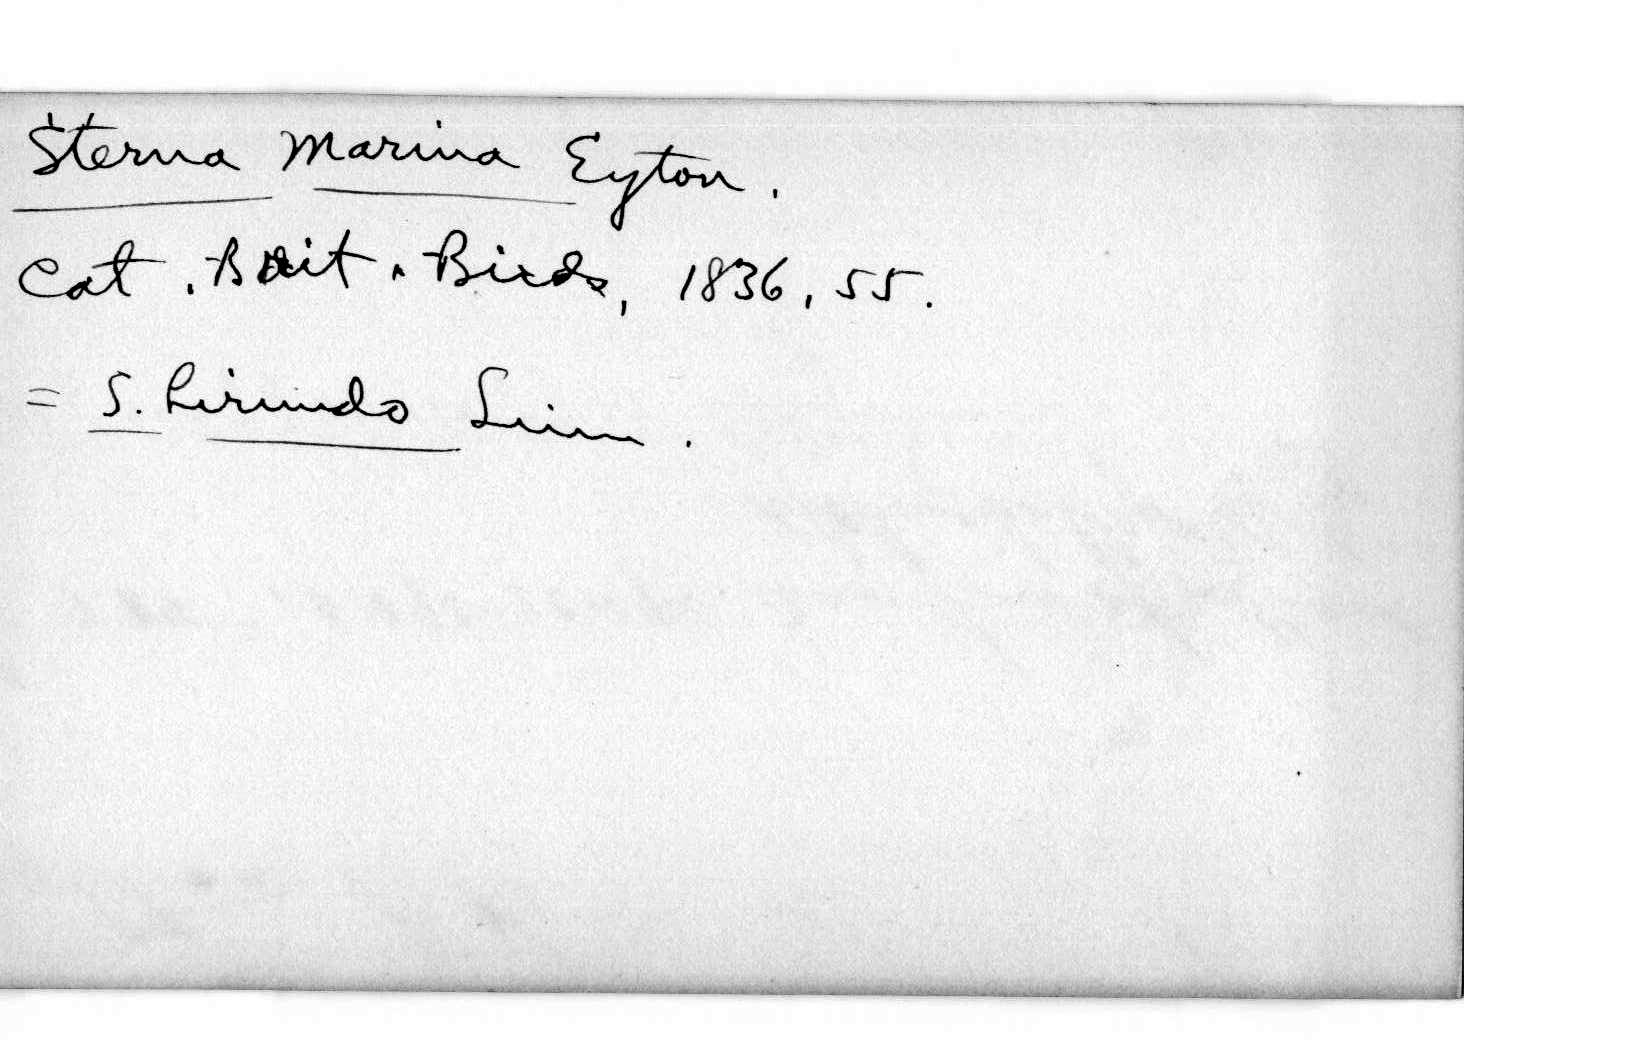 Sterna marina Eyton.
Cat. Brit. Birds, 1836, 55.
= S. hirundo Linn.